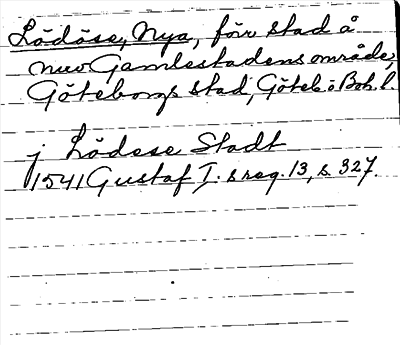 Lödöse, Nya, förr stad å
nuv Gamlestadens område,
Göteborgs stad, Göteb o Boh. l.
j Lödese Stadt
1541 Gustaf I. s reg. 13, s. 327.